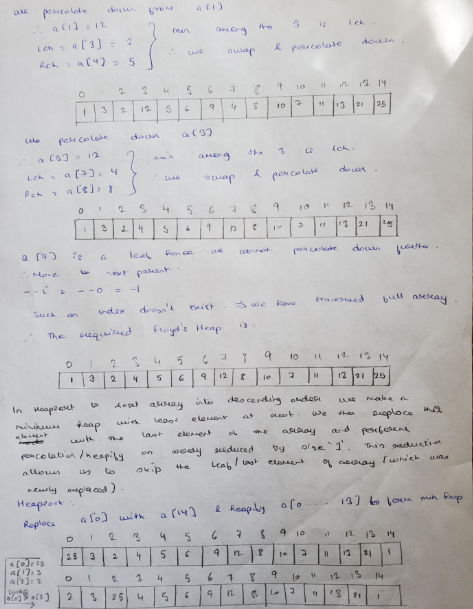 we percolate down from a[1]
∴ a[1] = 12
Lch = a[3] = 2
Rch = a[4] = 5
min among the 3 is Lch.
∴ we swap & percolate down.
0 1 2 3 4 5 6 7 8 9 10 11 12 13 14
1 3 2 12 5 6 9 4 8 10 7 11 13 21 25
we percolate down a[3]
∴ a[3] = 12
Lch = a[7] = 4
Rch = a[8] = 8
min among the 3 is Lch.
∴ we swap & percolate down.
0 1 2 3 4 5 6 7 8 9 10 11 12 13 14
1 3 2 4 5 6 9 12 8 10 7 11 13 21 25
a[7] is a leaf hence we cannot percolate down further.
∴ Move to next parent.
--i = --0 = -1
Such an index doesn't exist. ⇒ We have traversed full array.
∴ The required Floyd's Heap is:
0 1 2 3 4 5 6 7 8 9 10 11 12 13 14
1 3 2 4 5 6 9 12 8 10 7 11 13 21 25
In Heapsort to sort array into descending order we make a
minimum heap with least element at root. We then replace this
element with the last element of the array and perform
percolation/heapify on array reduced by size '1'. This reduction
allows us to skip the leaf/last element of array (which was
newly replaced).
Heapsort:
Replace a[0] with a[14] & heapify a[0 ..... 13] to form min heap
0 1 2 3 4 5 6 7 8 9 10 11 12 13 14
25 3 2 4 5 6 9 12 8 10 7 11 13 21 1
a[0] = 25
a[1] = 3
a[2] = 2
swap
a[0] & a[2]
0 1 2 3 4 5 6 7 8 9 10 11 12 13 14
2 3 25 4 5 6 9 12 8 10 7 11 13 21 1